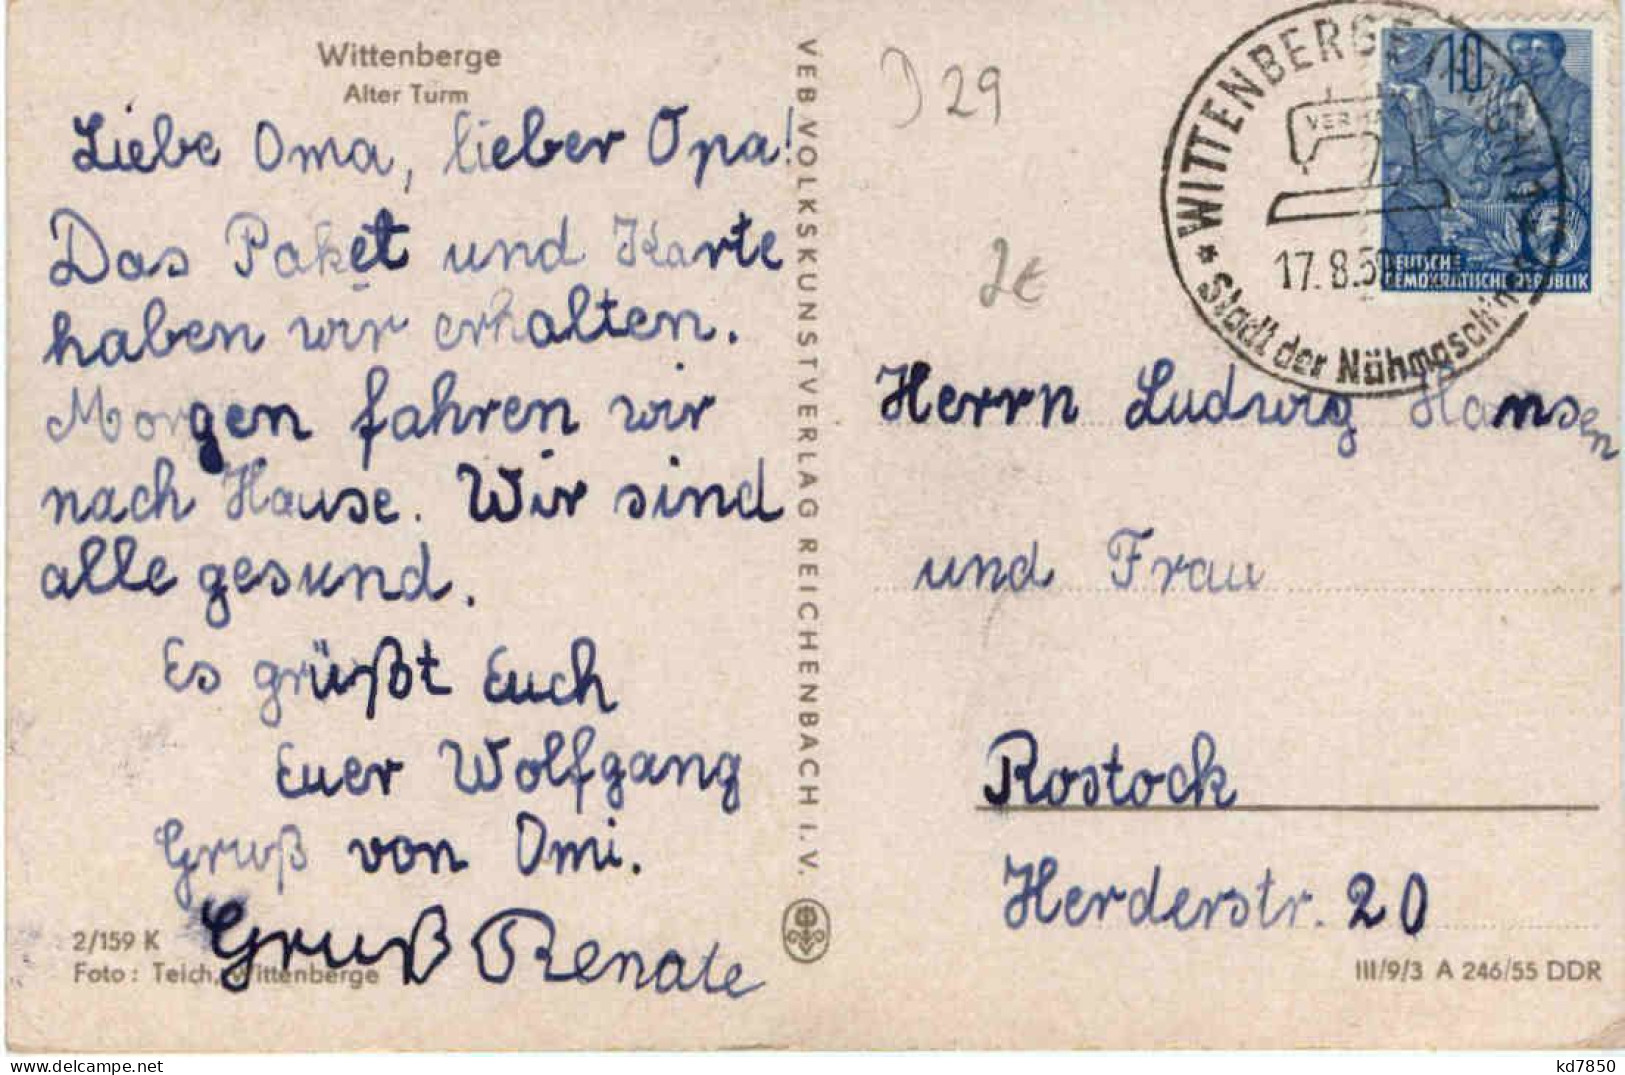 Wittenberge
Alter Turm
Liebe Oma, lieber Opa!
Das Paket und Karte
haben wir erhalten.
Morgen fahren wir
nach Hause. Wir sind
alle gesund.
Es grüßt Euch
Euer Wolfgang
Gruß von Omi.
Gruß Renate
2/159 K
Foto: Teich, Wittenberge
VEB VOLKSKUNSTVERLAG REICHENBACH I. V.
29
2€
WITTENBERGE
17.8.5
* Stadt der Nähmaschinen
10
5
DEUTSCHE
DEMOKRATISCHE REPUBLIK
Herrn Ludwig Hansen
und Frau
Rostock
Herderstr. 20
III/9/3 A 246/55 DDR
kd7850